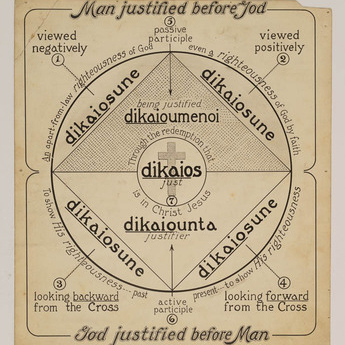 Man justified before God
5
passive
participle
viewed
negatively
1
viewed
positively
2
An apart-from-law righteousness of God
even a righteousness of God by faith
dikaiosune
dikaiosune
being justified
dikaioumenoi
Through the redemption that
dikaios
just
7
is in Christ Jesus
dikaiounta
justifier
dikaiosune
dikaiosune
To show His righteousness... past
present... to show His righteousness
3
looking backward
from the Cross
active
participle
6
4
looking forward
from the Cross
God justified before Man